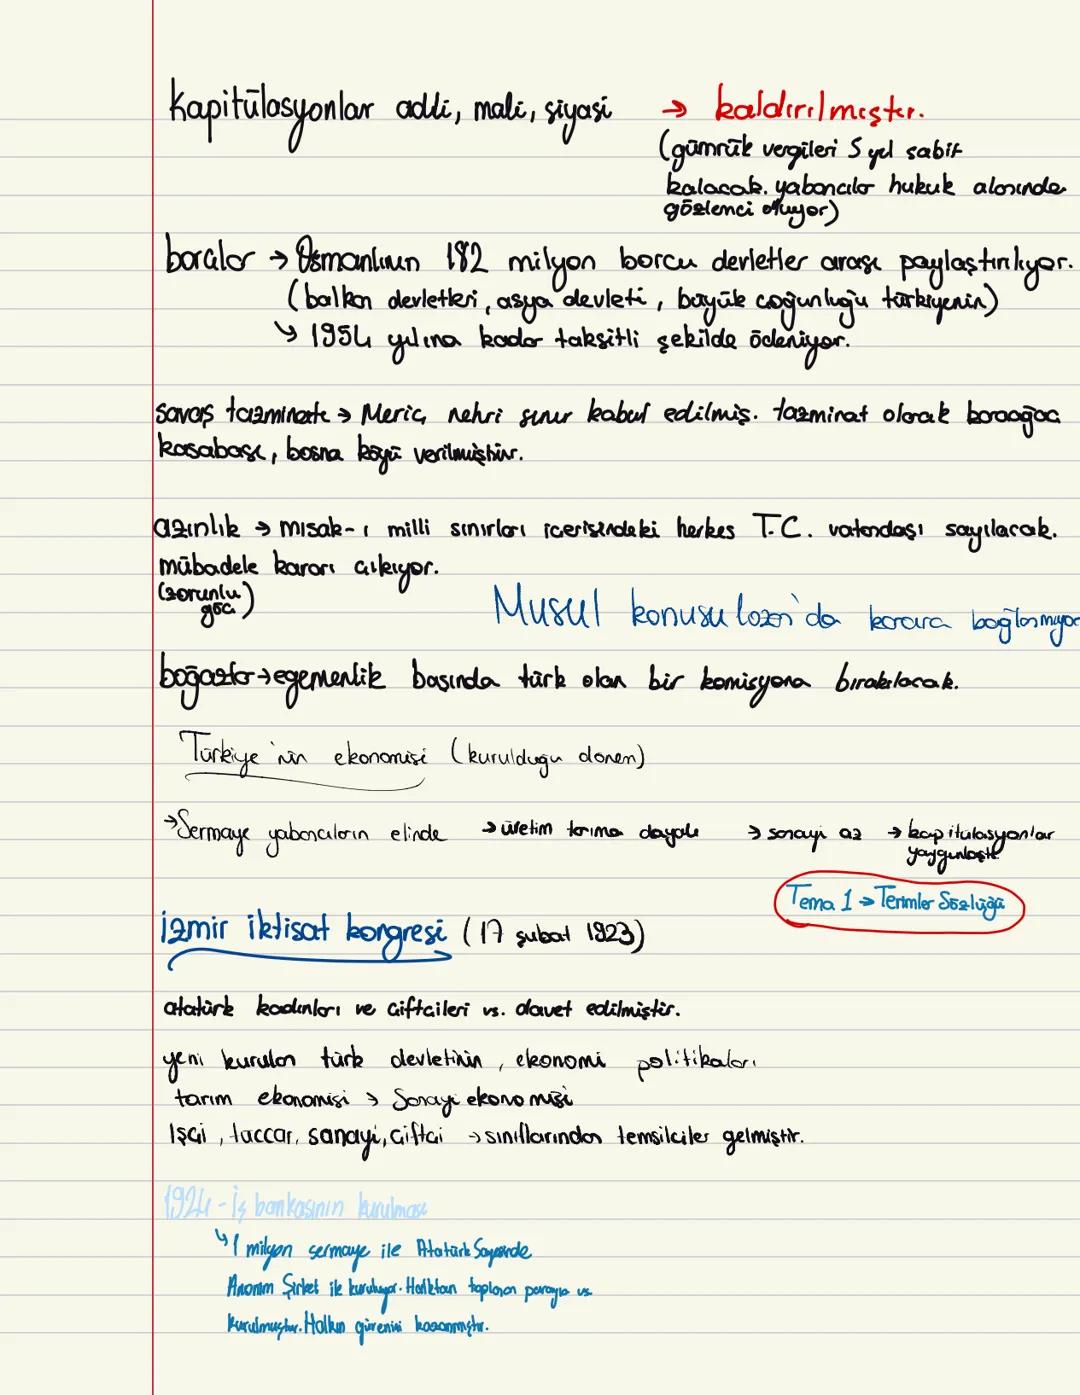 kapitülasyonlar adli, mali, siyasi → kaldırılmıştır.
(gümrük vergileri 5 yıl sabit
kalacak. yabancılar hukuk alanında
gözlenci oluyor)
borçlar → Osmanlının 182 milyon borcu devletler arası paylaştırılıyor.
(balkan devletleri, asya devleti, büyük çoğunluğu türkiyenin)
↳ 1954 yılına kadar taksitli şekilde ödeniyor.
savaş tazminatı → Meriç nehri sınır kabul edilmiş. tazminat olarak karaağaç
kasabası, bosna köyü verilmiştir.
azınlık → mısak-ı milli sınırları içerisindeki herkes T.C. vatandaşı sayılacak.
mübadele kararı çıkıyor.
(zorunlu
göç)
Musul konusu lozan'da karara bağlanmıyor
boğazlar → egemenlik başında türk olan bir komisyona bırakılacak.
Türkiye'nin ekonomisi (kurulduğu dönem)
→ Sermaye yabancıların elinde → üretim tarıma dayalı → sanayi az → kapitülasyonlar
yaygınlaştı
Tema 1 → Terimler Sözlüğü
izmir iktisat kongresi (17 şubat 1923)
atatürk kadınları ve çiftçileri vs. davet edilmiştir.
yeni kurulan türk devletinin, ekonomi politikaları
tarım ekonomisi → Sanayi ekonomisi
İşçi, tüccar, sanayi, çiftçi → sınıflarından temsilciler gelmiştir.
1924 - İş bankasının kurulması
↳ 1 milyon sermaye ile Atatürk Sayesinde
Anonim Şirket ile kuruluyor. Halktan toplanan parayla vs.
kurulmuştur. Halkın güvenini kazanmıştır.